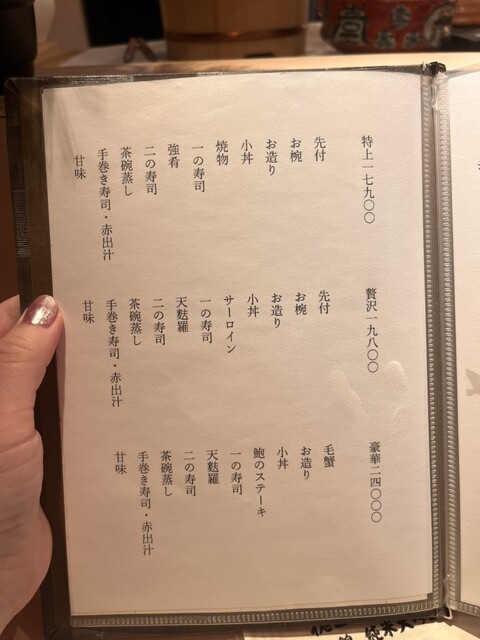 特上一七九〇〇
先付
お椀
お造り
小丼
焼物
一の寿司
強肴
二の寿司
茶碗蒸し
手巻き寿司・赤出汁
甘味
贅沢一九八〇〇
先付
お椀
お造り
小丼
サーロイン
一の寿司
天麩羅
二の寿司
茶碗蒸し
手巻き寿司・赤出汁
甘味
豪華二四〇〇〇
毛蟹
お造り
小丼
鮑のステーキ
一の寿司
天麩羅
二の寿司
茶碗蒸し
手巻き寿司・赤出汁
甘味